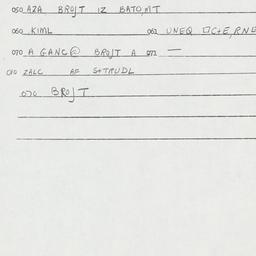 050 AZA BROJT IZ BATO,MT
060 KIML 062 UNEQ
070 A GANC@ BROJT A 072 —
080 ZALC AF STRUDL
090 BROJT